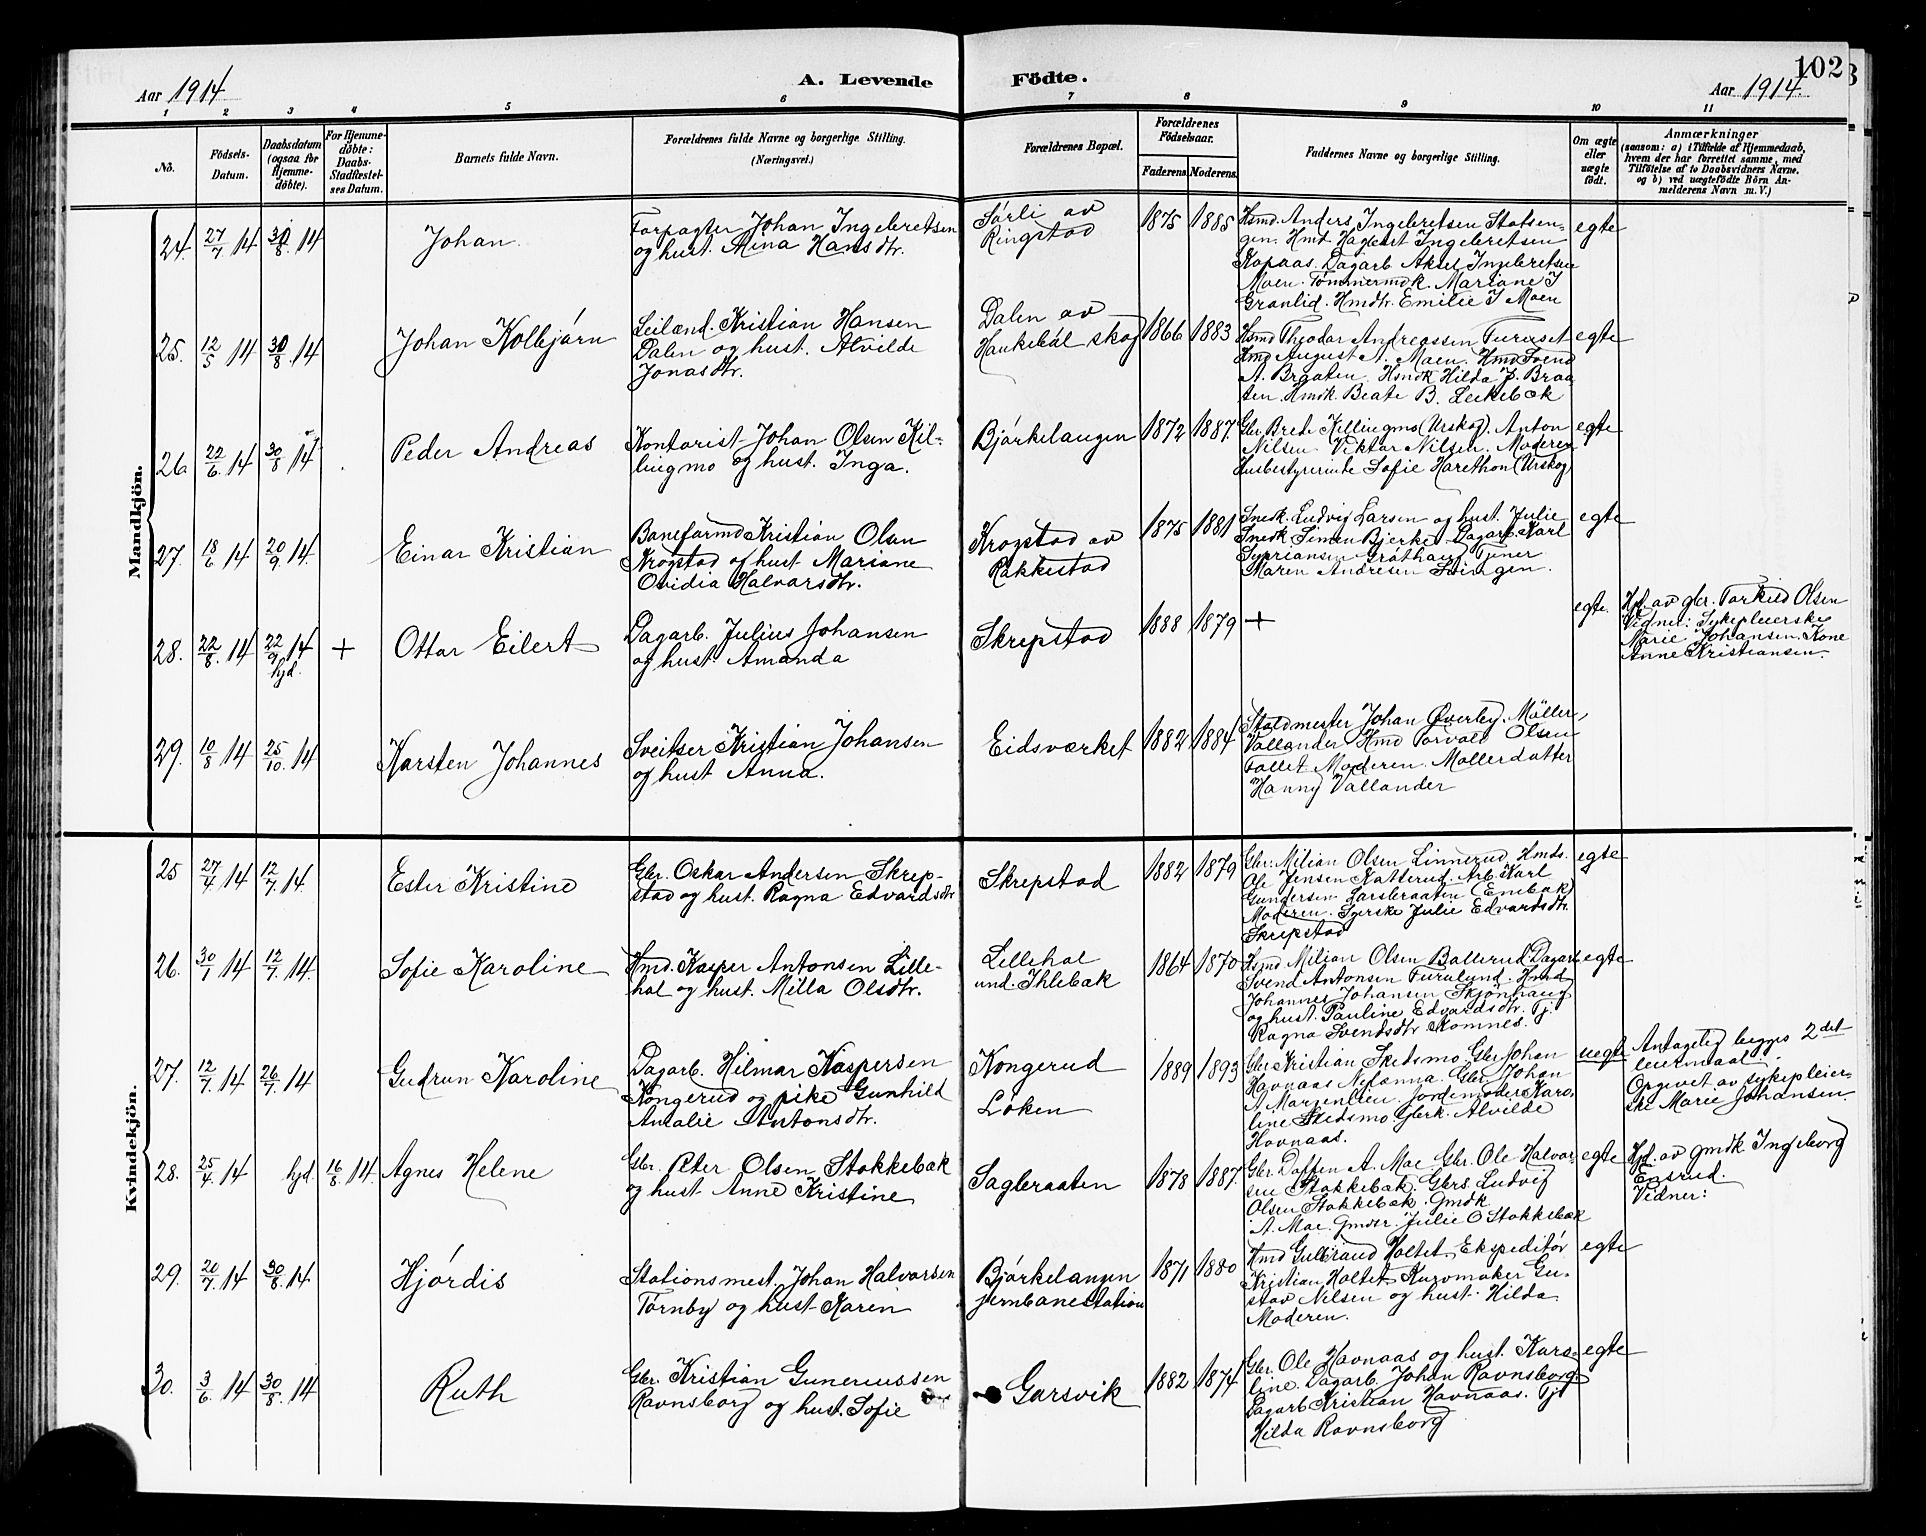 102
Aar 1914
A. Levende
Födte.
Aar 1914.
1 2 3 4 5 6 7 8 9 10 11
No.
Födsels-
Datum.
Daabsdatum
(ogsaa for
Hjemme-
döbte).
For Hjemme-
döbte:
Daabs-
Stadfæstel-
ses Datum.
Barnets fulde Navn.
Forældrenes fulde Navne og borgerlige Stilling.
(Næringsvei.)
Forældrenes Bopæl.
Forældrenes
Födselsaar.
Faderens. Moderens.
Faddernes Navne og borgerlige Stilling.
Om ægte
eller
uægte
födt.
Anmærkninger
(saasom: a) i Tilfælde af Hjemmedaab,
hvem der har forrettet samme, med
Tilföielse af to Daabsvidners Navne.
og b) ved uægtefödte Börn An-
melderens Navn m. V.)
Mandkjön.
24. 27/7 14 30/8 14
Johan
Forpagter Johan Ingebretsen
og hust. Mina Hansdtr.
Sørli av
Ringstad
1875 1885
Hsmd. Anders Ingebretsen Statsen-
gen. Hmd. Ingebretsen
Kopaas. Dagarb. Aksel Ingebretsen
Moen. Tømmermdk. Mariane I
Granlid. Hmdtr. Emilie I Moen
egte
25. 12/5 14 30/8 14
Johan Kolbjørn
Leilænd. Kristian Hansen
Dalen og hust. Alvilde
Jonasdtr.
Dalen av
Haukebøl skog
1866 1883
Hsmd Theodor Andreassen Furuset
Hmd August A. Moen. Hmd Svend
A. Braaten. Hsmdk Hilda P. Braa-
ten. Hmdk Beate B. Leikebæk
egte
26 22/6 14 30/8 14
Peder Andreas
Kontorist Johan Olsen Kil-
lingmo og hust. Inga.
Bjørkelangen
1872 1887.
Gbr. Brede Killingmo (Urskog). Anton
Nilsen. Viktor Nilsen. Moderen
Husbestyrerinde Sofie Harethon (Urskog)
egte
27. 18/6 14 20/9 14.
Einar Kristian
Baneformd Kristian Olsen
Krogstad og hust. Mariane
Ovidia Halvarsdtr.
Krogstad av
Rakkestad
1875 1881
Snedk. Ludvig Larsen og hust. Julie
Snedk Simen Bjerke. Dagarb. Karl
Syversen Gråthaug Tjener
Maren Andresen Svingen.
egte
28. 22/8 14 22/9 14 +
hjd.
Ottar Eilert
Dagarb. Julius Johansen
og hust. Amanda
Skrepstad
1888 1879 +
egte.
Hjd. av gbr. Torkild Olsen
Vidner: Sykepleierske
Marie Johansen. Kone
Anne Kristiansen.
29. 10/8 14 25/10 14
Karsten Johannes
Sveitser Kristian Johansen
og hust Anna.
Eidsværket
1882 1884
Staldmester Johan Øverby. Møller
Vallander Hmd Torvald Olsen
Tollet. Moderen. Møllerdatter
Hanny Vallander
Kvindekjön.
25 27/4 14 12/7 14.
Ester Kristine
Gbr. Oskar Andersen Skrep-
stad og hust. Ragna Edvardsdtr
Skrepstad
1882 1879
Gbr. Milian Olsen Linnerud Hmds.
Ole Jensen Katterud. Arb. Karl
Gundersen Larsbraaten (Enebak)
Moderen. Syerske Julie Edvardsdtr.
Skrepstad
egte
26. 30/1 14 12/7. 14.
Sofie Karoline
Hmd. Kasper Antonsen Lille-
hol og hust. Milla Olsdtr.
Lillehol
und. Ihlebæk
1864 1870
Hsmd Milian Olsen Ballerud Dagarb
Svend Antonsen Furulund. Hmd
Johannes Johansen Skjønhaug
og hust. Pauline Edvardsdtr. Tj.
Ragna Svendsdtr Komnes.
egte
27. 12/7 14 26/7. 14
Gudrun Karoline
Dagarb. Hilmar Kaspersen
Kongerud og pike Gunhild
Amalie Antonsdtr.
Kongerud
Løken
1889 1893
Gbr Kristian Skedsmo. Gbr Johan
Havnaas Nyjanna. Gbr Johan
A. Jordemoder Karo-
line Skedsmo. Gbrk. Alvilde
Hovnaas.
uegte
Antagelig begges 2det
leiermaal.
Opgivet av sykepleier-
ske Marie Johansen
28. 25/4 14 hjd 16/8 14.
Agnes Helene
Gbr. Peter Olsen Stokkebæk
og hust. Anne Kristine
Sagbraaten
1878 1887.
Gbr. A. Moe Gbr. Ole Halvor-
sen Stokkebæk. Gbrs. Ludvig
Olsen Stokkebæk. Gmdk
A. Moe. Gmdtr. Julie O Stokkebæk
egte
Hjd. av gmdk Ingeborg
Ensrud.
Vidner:
29. 20/7 14 30/8 14
Hjørdis
Stationsmest. Johan Halvorsen
Tornby og hust Karen
Bjørkelangen
jernbanestation
1871 1880
Hmd Gulbrand Holtet. Ekspeditør
Kristian Holtet. Kurvmaker Gu-
stav Nilsen og hust. Hilda
Moderen.
egte
30. 3/6 14 30/8 14
Ruth
Gbr. Kristian Guneriussen
Ravnsborg og hust. Sofie
Garsvik
1882 1874
Gbr. Ole Havnaas og hust. Karo-
line. Dagarb. Johan Ravnsborg
Dagarb Kristian Havnaas. Tj.
Hilda Ravnsborg
egte